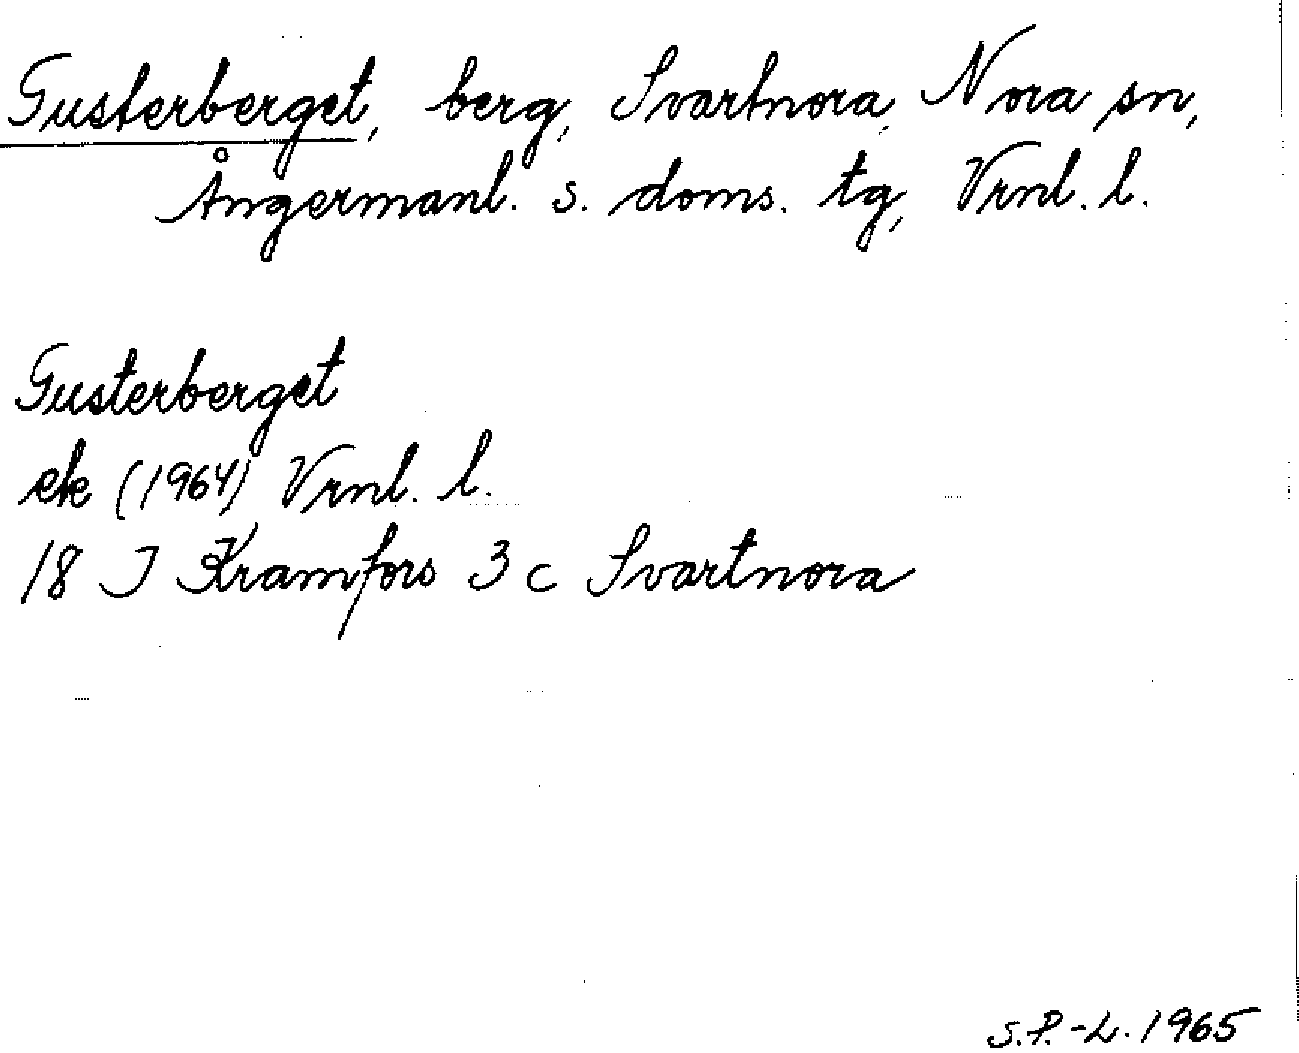 Gusterberget, berg, Svartnora, Nora sn,
Ångermanl. s. doms. tg, Vrnl. l.
Gusterberget
ek (1964) Vrnl. l.
18 I Kramfors 3 c Svartnora
S.P.-L. 1965